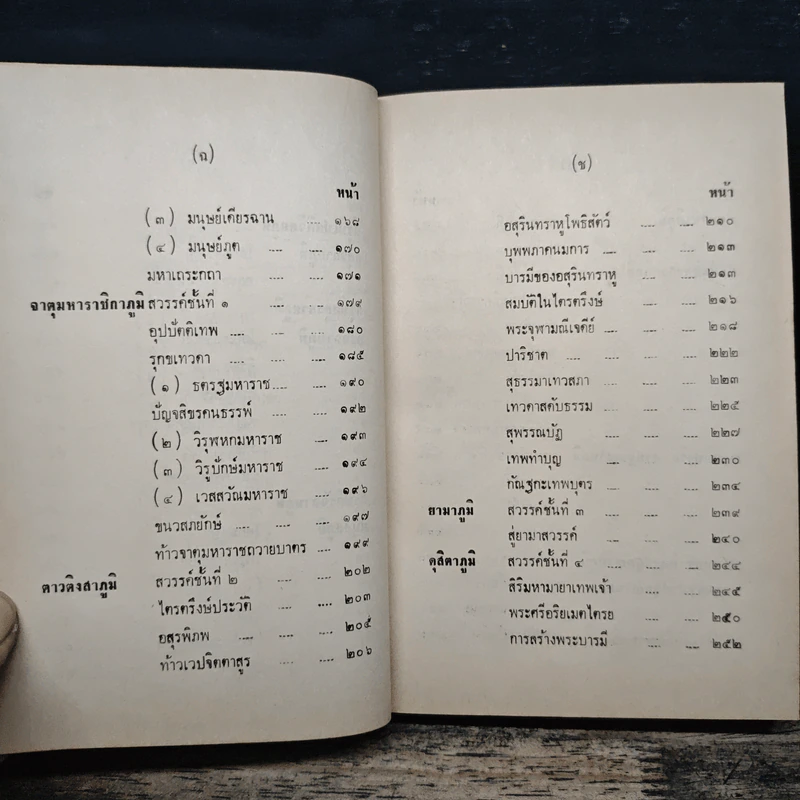 (ฉ)
หน้า
(๓) มนุษย์เดียรฉาน .... ๑๖๘
(๔) มนุษย์ภูต .... .... ๑๗๐
มหาเถระกถา .... ๑๗๑
จาตุมหาราชิกาภูมิ สวรรค์ชั้นที่ ๑ .... ๑๗๙
อุปปัตติเทพ .... .... ๑๘๐
รุกขเทวดา .... .... ๑๘๕
(๑) ธตรฐมหาราช .... .... ๑๙๐
ปัญจสิขรคนธรรพ์ .... ๑๙๒
(๒) วิรุฬหกมหาราช .... ๑๙๓
(๓) วิรูปักษ์มหาราช .... ๑๙๔
(๔) เวสสวัณมหาราช .... ๑๙๖
ชนวสภยักษ์ .... .... ๑๙๗
ท้าวจาตุมหาราชถวายบาตร .... ๑๙๙
ตาวติงสาภูมิ สวรรค์ชั้นที่ ๒ .... .... ๒๐๒
ไตรตรึงษ์ประวัติ .... .... ๒๐๓
อสุรพิภพ .... .... ๒๐๕
ท้าวเวปจิตตาสูร .... .... ๒๐๖
(ช)
หน้า
อสุรินทราหูโพธิสัตว์ .... .... ๒๑๐
บุพพภาคนมการ .... .... ๒๑๓
บารมีของอสุรินทราหู .... ๒๑๓
สมบัติในไตรตรึงษ์ .... .... ๒๑๖
พระจุฬามณีเจดีย์ .... .... ๒๑๘
ปาริชาต .... .... ๒๒๒
สุธรรมาเทวสภา .... .... ๒๒๓
เทวดาสดับธรรม .... .... ๒๒๕
สุพรรณบัฏ .... .... ๒๒๗
เทพทำบุญ .... .... ๒๓๐
กัณฐกะเทพบุตร .... .... ๒๓๔
ยามาภูมิ สวรรค์ชั้นที่ ๓ .... .... ๒๓๙
สู่ยามาสวรรค์ .... .... ๒๔๐
ดุสิตาภูมิ สวรรค์ชั้นที่ ๔ .... .... ๒๔๔
สิริมหามายาเทพเจ้า .... .... ๒๔๕
พระศรีอริยเมตไตรย .... .... ๒๕๐
การสร้างพระบารมี .... .... ๒๕๒